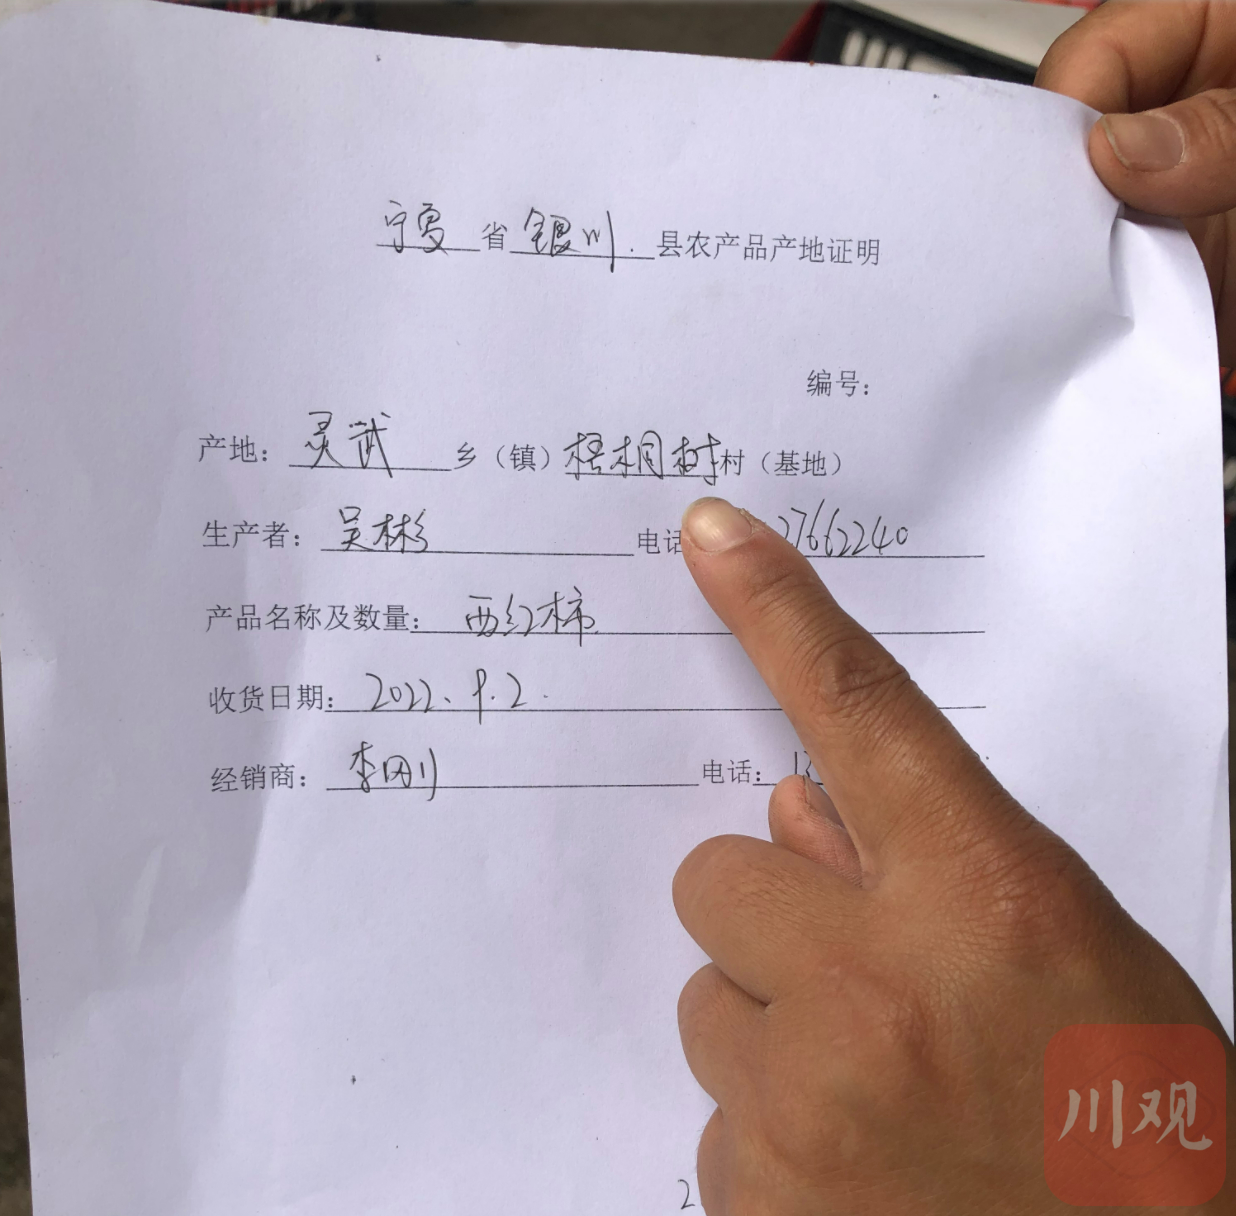 宁夏省银川.县农产品产地证明
编号:
产地:灵武乡(镇)梧桐树村(基地)
生产者:吴彬 电话27662240
产品名称及数量:西红柿
收货日期:2022.9.2.
经销商:李刚 电话:13
2
川观